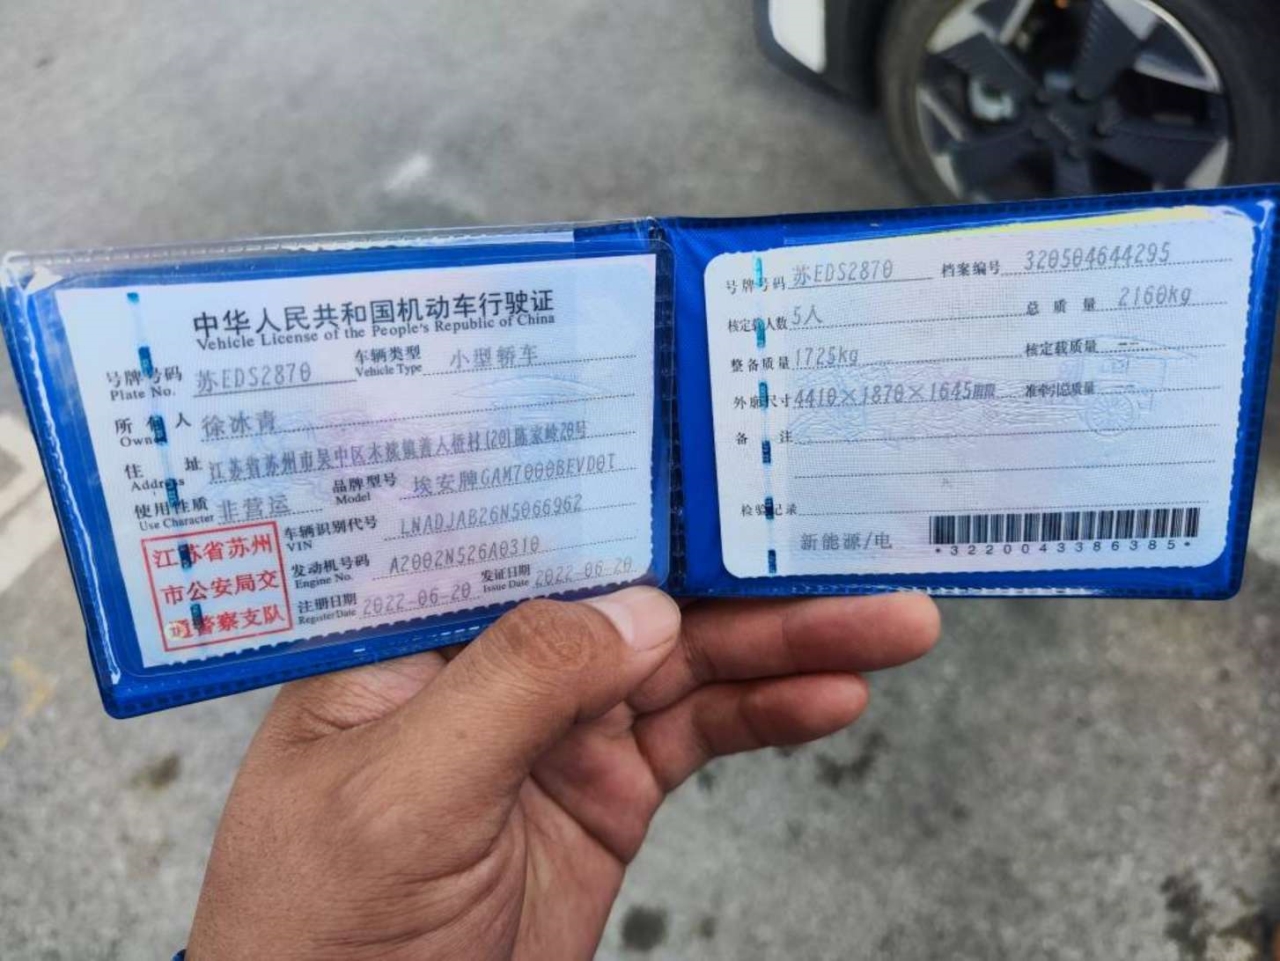 中华人民共和国机动车行驶证
Vehicle License of the People's Republic of China
号牌号码 苏EDS2870 车辆类型 小型轿车
Plate No. Vehicle Type
所有人 徐冰青
Owner
住址 江苏省苏州市吴中区木渎镇善人桥村(20)陈家岭20号
Address
使用性质 非营运 品牌型号 埃安牌GAM7000BEVD0T
Use Character Model
江苏省苏州
市公安局交
通警察支队
车辆识别代号 LNADJAB26N5066962
VIN
发动机号码 A2002N526A0310
Engine No.
注册日期 2022-06-20 发证日期 2022-06-20
Register Date Issue Date
号牌号码 苏EDS2870 档案编号 320504644295
核定载人数 5人 总质量 2160kg
整备质量 1725kg 核定载质量 --
外廓尺寸 4410×1870×1645mm 准牵引总质量 --
备注
检验记录
新能源/电
*3220043386385*